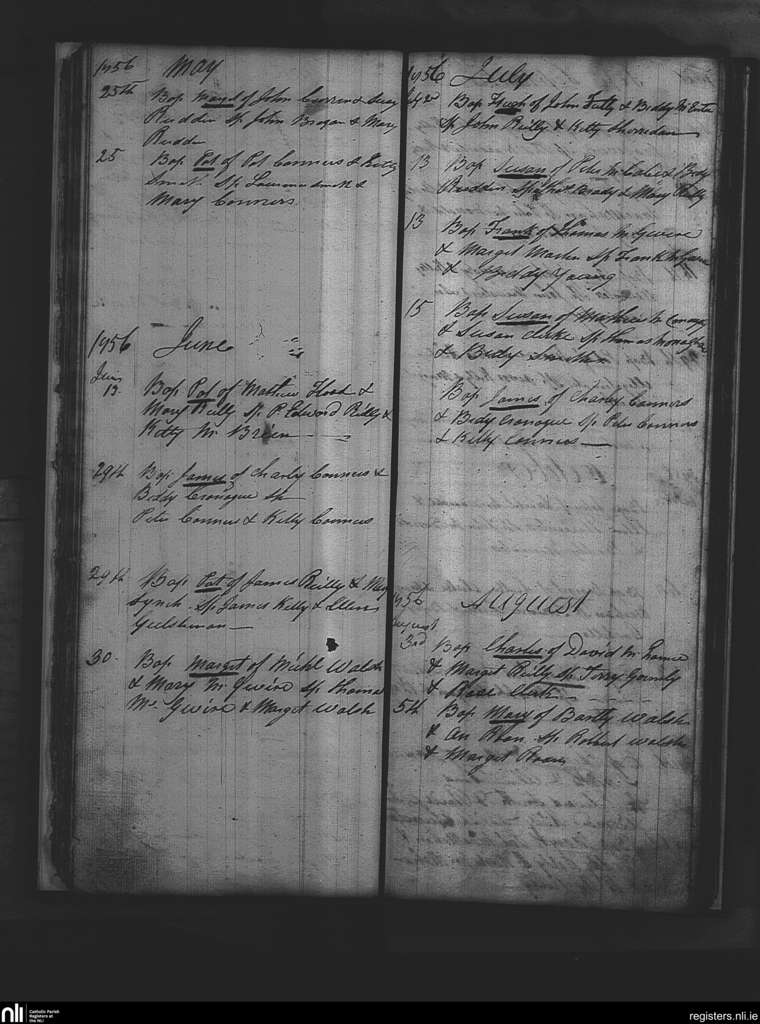 1856 May
25th Bap Margt of John & Susy
Rudden Sp John Brogan & Mary
Rudden
25 Bap Pat of Pat Conners & Kitty
Smith Sp Laurence Smith &
Mary Conners
1856 June
June
13 Bap Pat of Mathew Flood &
Mary Reilly Sp P. Edward Reilly &
Kitty Mc Breen
29th Bap James of Charly Conners &
Biddy Cronogue Sp
Peter Conners & Kelly Conners
29th Bap Pat of James Reilly & Mary
Lynch Sp James Kelly & Ellen
30 Bap Margret of Michl Walsh
& Mary Mc Gwire Sp Thomas
Mc Gwire & Marget Walsh
1856 July
Bap Hugh of John & Biddy
Sp John Reilly & Kitty Sheridan
13 Bap Susan of Peter & Bidy
Rudden Sp Brady & Mary Reilly
13 Bap Frank of Thomas Mc Gwire
& Marget Martin Sp Frank
& Biddy Young
15 Bap Susan of Mathew
& Susan Clarke Sp Thomas Monaghan
& Betty Smith
Bap James of Charly Conners
& Bidy Cronogue Sp Peter Conners
& Kelly Conners
1856 August
August
3rd Bap Charles of David
& Marget Reilly Sp Terry Gormly
& Rose Clark
5th Bap Mary of Bartly Walsh
& An Sp Robert Walsh
& Marget
nli
Catholic Parish
Registers at
the NLI
registers.nli.ie